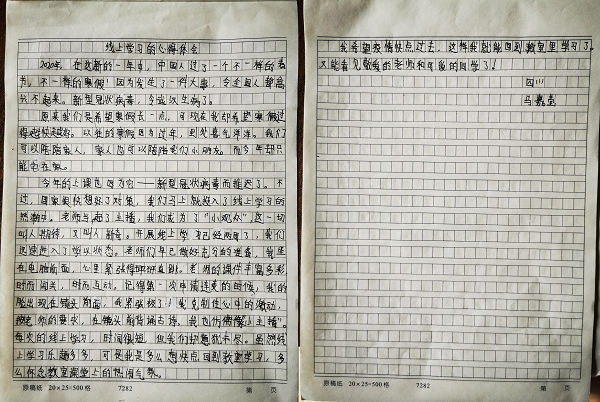 线上学习的心得体会
2020年，在这新的一年里，中国人过了一个不一样的春
节。不一样的寒假！因为发生了一件大事，令全国人都高
兴不起来。新型冠状病毒，令武汉生病了。
原来我们是希望寒假过去一点，可现在我却希望寒假过
得越快越好。以往的寒假因为过年，到处喜气洋洋。我们
可以陪陪家人，家人也可以陪陪我们小朋友。而今年却只
能宅在家。
今年的上课也因为它——新型冠状病毒而推迟了。不
过，国家很快想好了对策，我们马上就投入了线上学习的
热潮中。老师当起了主播，我们成为了“小观众”，这一切
叫人期待，又叫人新奇。开展线上学习已经两周了，我们
迅速进入了学习状态。老师们早已做好充分的准备，我坐
在电脑前面，心里紧张得怦怦直跳。老师的课件丰富多彩
时而闯关，时而互动。记得第一次申请连麦的时候，我的
脸出现在镜头前面，我紧张极了！我克制住心中的激动，
按老师的要求，在镜头前背诵古诗。我也仿佛像“小主播”。
每次的线上学习，时间很短，但我们却意犹未尽。虽然线
上学习乐趣多多，可是我是多么想快点回到教室学习，多
么怀念教室课堂上的热闹气氛。
原稿纸 20×25=500格 7282 第 页
我希望疫情快点过去，这样我就能回到教室里学习了。
又能看见敬爱的老师和可爱的同学了！
四(1)
马嘉
原稿纸 20×25=500格 7282 第 页